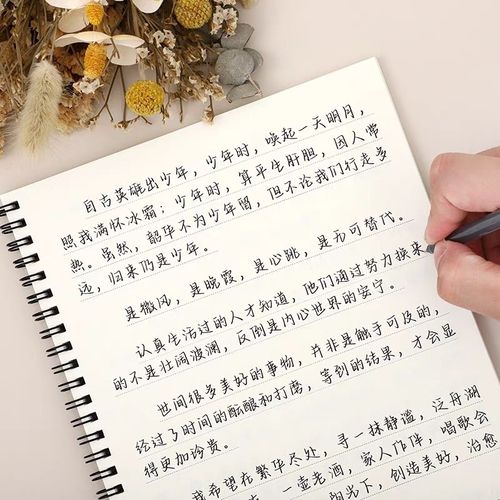 自古英雄出少年，少年时，唤起一天明月，
照我满怀冰霜；少年时，算平生肝胆，因人常
热。虽然，韶华不为少年留，但不论我们行走多
远，归来仍是少年。
是微风，是晚霞，是心跳，是无可替代。
认真生活过的人才知道，他们通过努力换来
的不是壮阔波澜，反倒是内心世界的安宁。
世间很多美好的事物，并非是触手可及的，
经过了时间的酝酿和打磨，等到的结果，才会显
得更加珍贵。
我希望在繁华尽处，寻一抹静谧，泛舟湖
一壶老酒，家人作伴，唱歌会
光下，创造美好，治愈